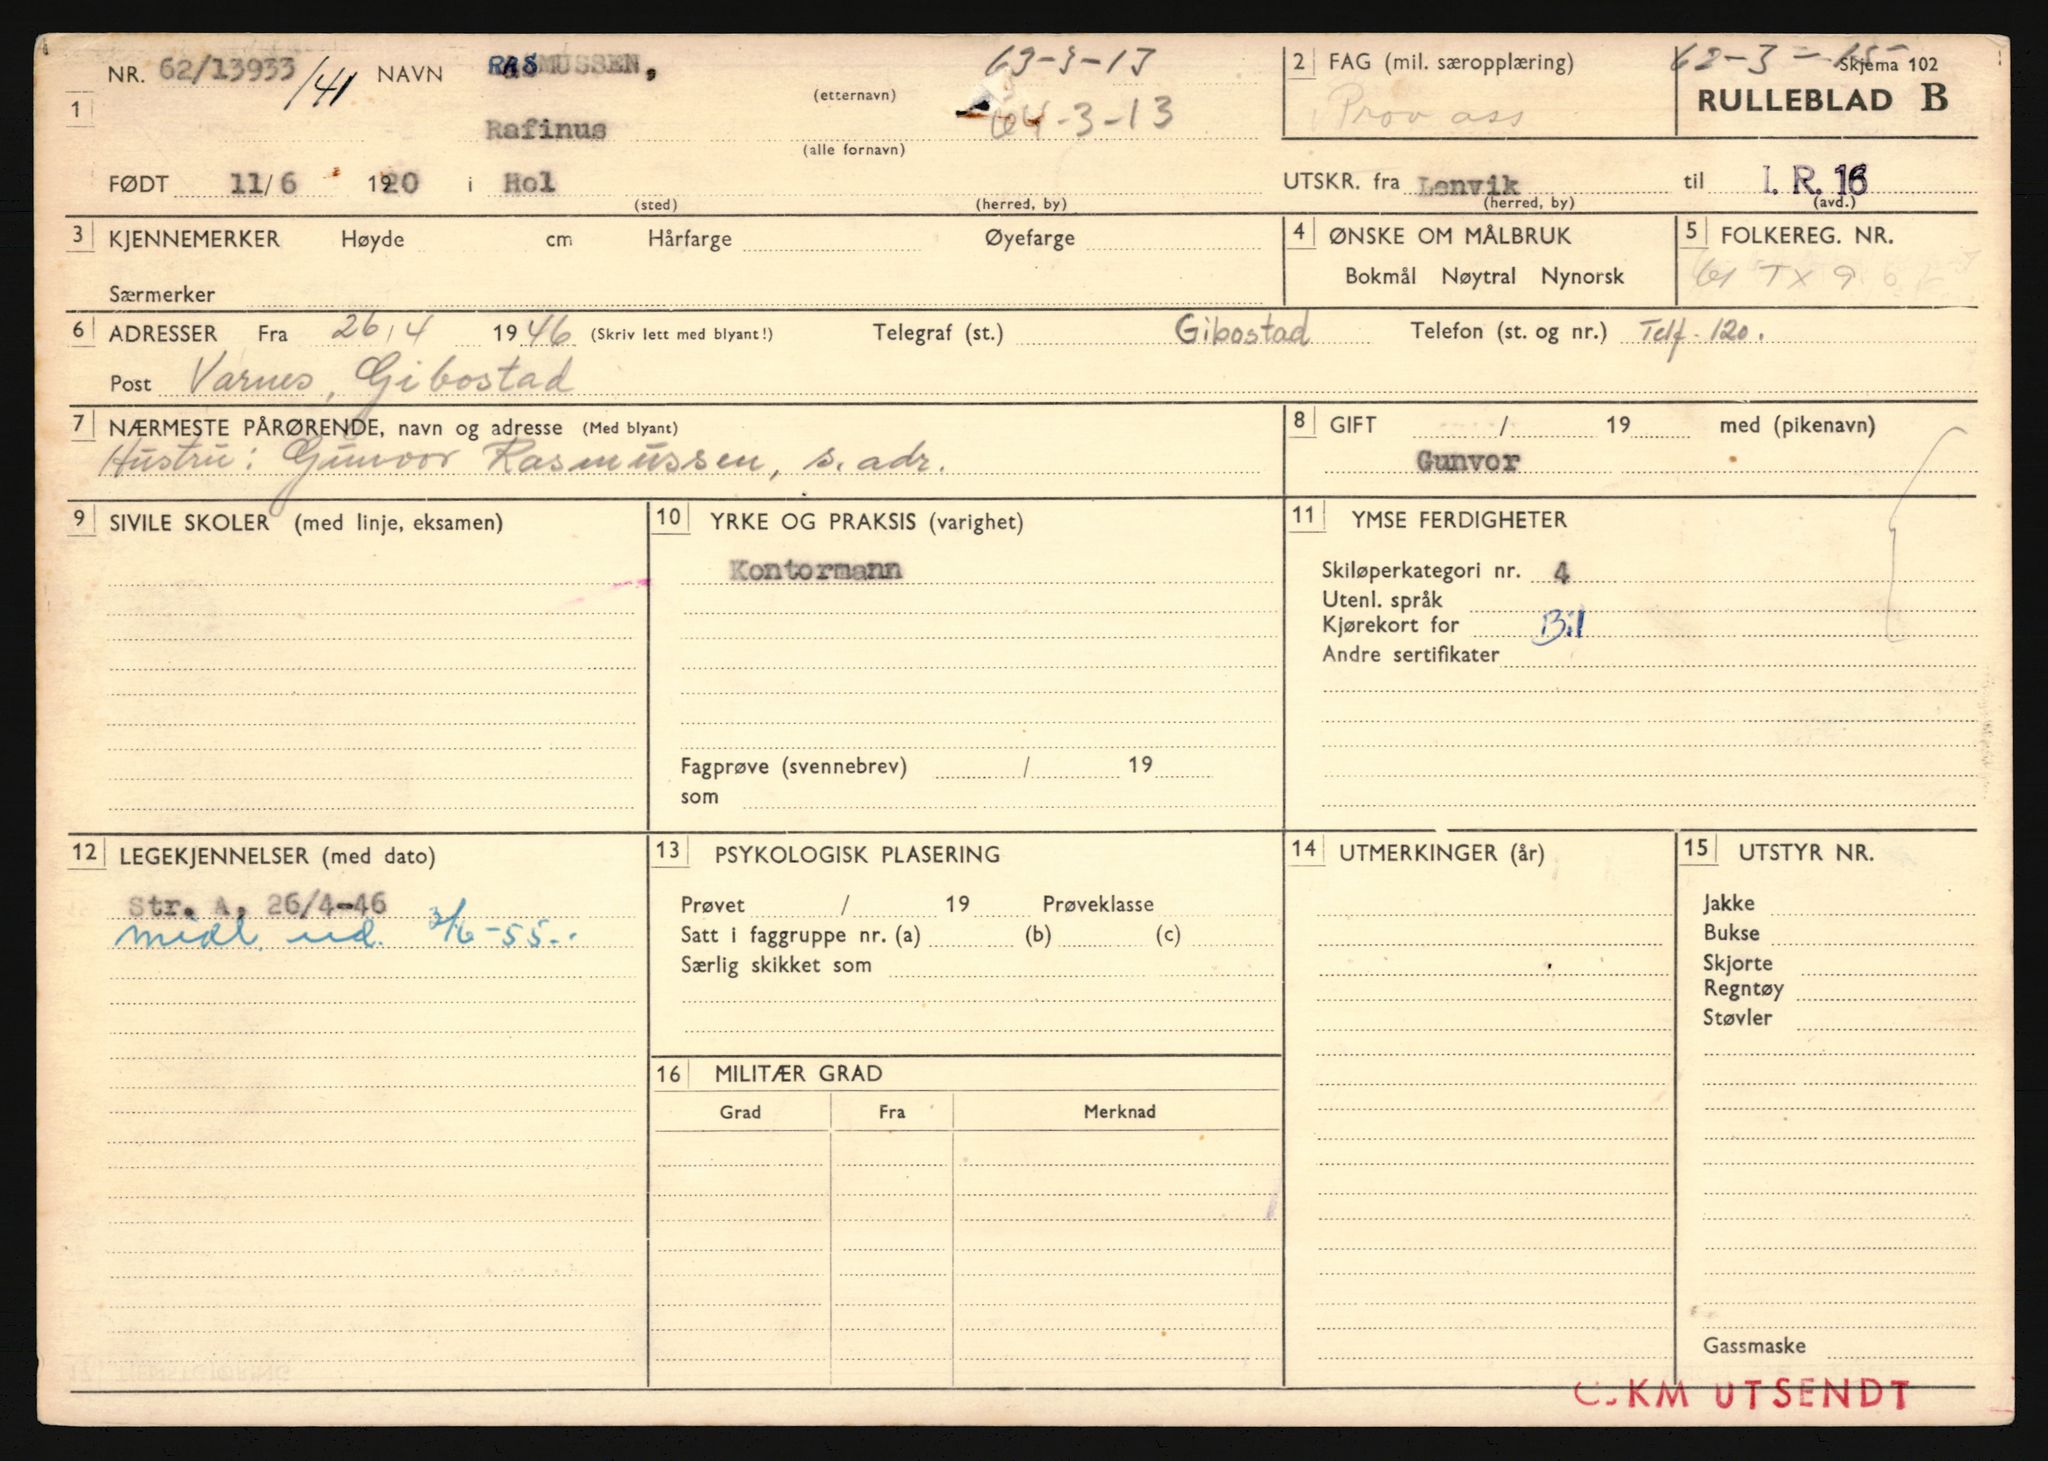 NR. 62/13933/41 NAVN RASMUSSEN, 63-3-13
1 (etternavn) 64-3-13
Rafinus
(alle fornavn)
FØDT 11/6 1920 i Hol
(sted) (herred, by)
2 FAG (mil. særopplæring)
Prov ass
62-3-15 Skjema 102
RULLEBLAD B
UTSKR. fra Lenvik til I. R. 16
(herred, by) (avd.)
3 KJENNEMERKER Høyde cm Hårfarge Øyefarge
Særmerker
4 ØNSKE OM MÅLBRUK
Bokmål Nøytral Nynorsk
5 FOLKEREG. NR.
6 ADRESSER Fra 26/4 1946 (Skriv lett med blyant!) Telegraf (st.) Gibostad Telefon (st. og nr.) Telf. 120.
Post Varnes, Gibostad
7 NÆRMESTE PÅRØRENDE, navn og adresse (Med blyant)
Hustru: Gunvor Rasmussen, s. adr.
8 GIFT / 19 med (pikenavn)
Gunvor
9 SIVILE SKOLER (med linje, eksamen)
10 YRKE OG PRAKSIS (varighet)
Kontormann
Fagprøve (svennebrev) / 19
som
11 YMSE FERDIGHETER
Skiløperkategori nr. 4
Utenl. språk
Kjørekort for Bil
Andre sertifikater
12 LEGEKJENNELSER (med dato)
Str. A, 26/4-46
midl. ud. 3/6-55.
13 PSYKOLOGISK PLASERING
Prøvet / 19 Prøveklasse
Satt i faggruppe nr. (a) (b) (c)
Særlig skikket som
14 UTMERKINGER (år)
15 UTSTYR NR.
Jakke
Bukse
Skjorte
Regntøy
Støvler
Gassmaske
16 MILITÆR GRAD
Grad Fra Merknad
KM UTSENDT